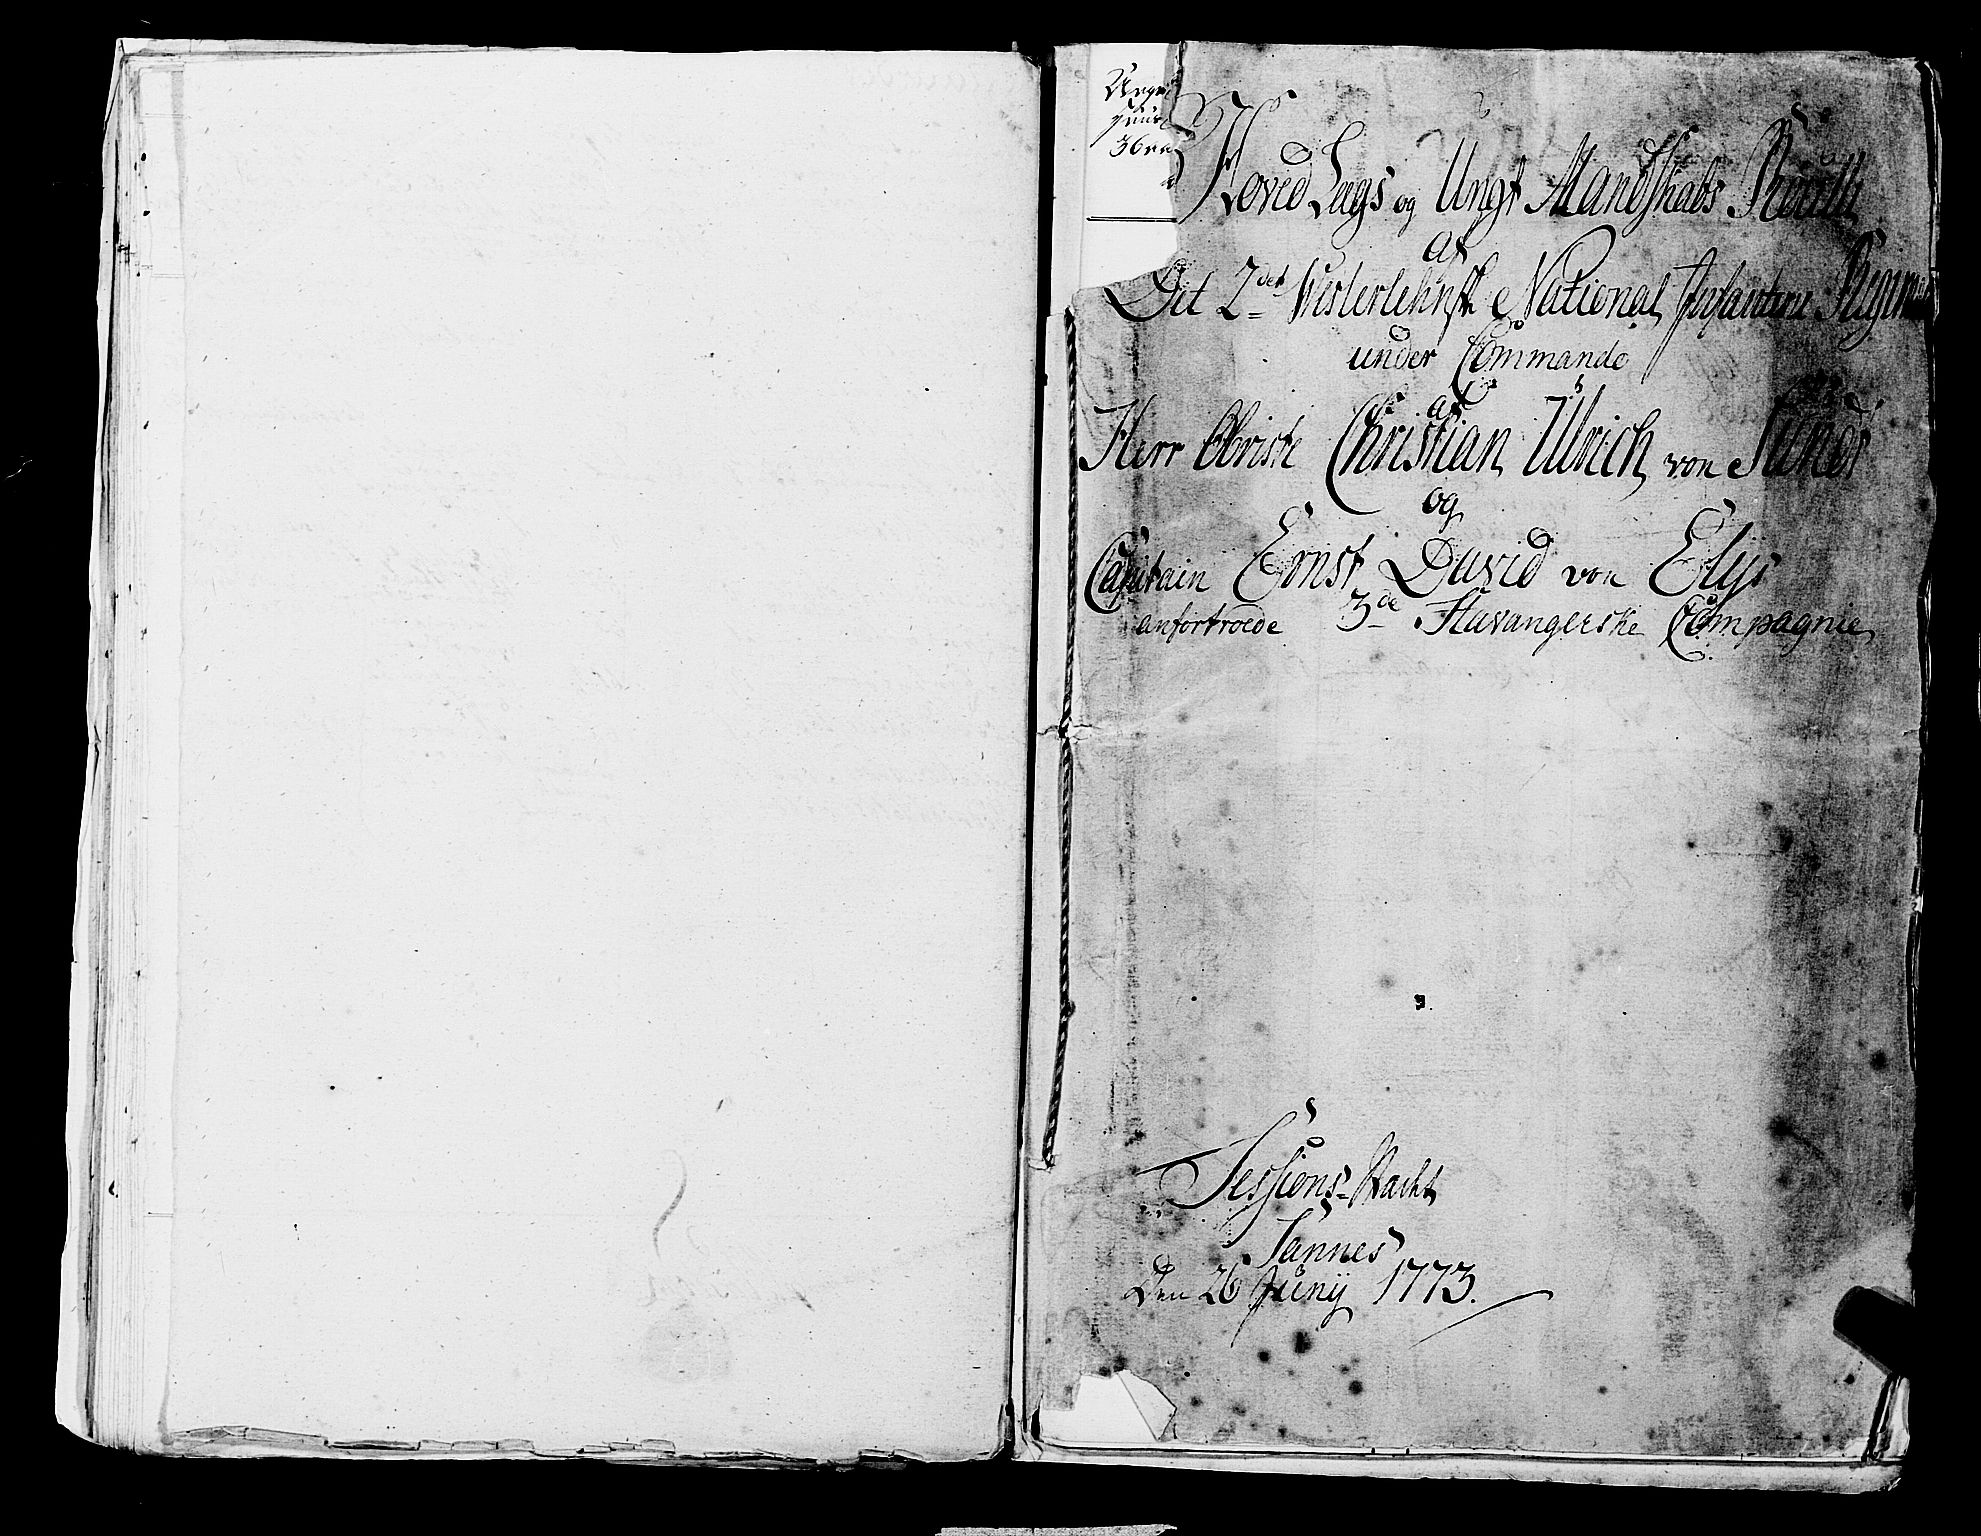 Hoved Lags og Ungt Mandskabs Rulle
af
Det 2det Westerlehnske National Infanterie Regiment
under Commando
af
Herr Obriste Christian Ulrich von
og
Capitain Ernst David von Elys
anfortroede 3de Stavangerske Compagnie
36
Sessions
Sannes
Den 26 Junij 1773.